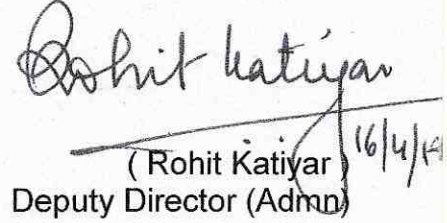 Rohit Katiyar
16/4/19
( Rohit Katiyar )
Deputy Director (Admn)